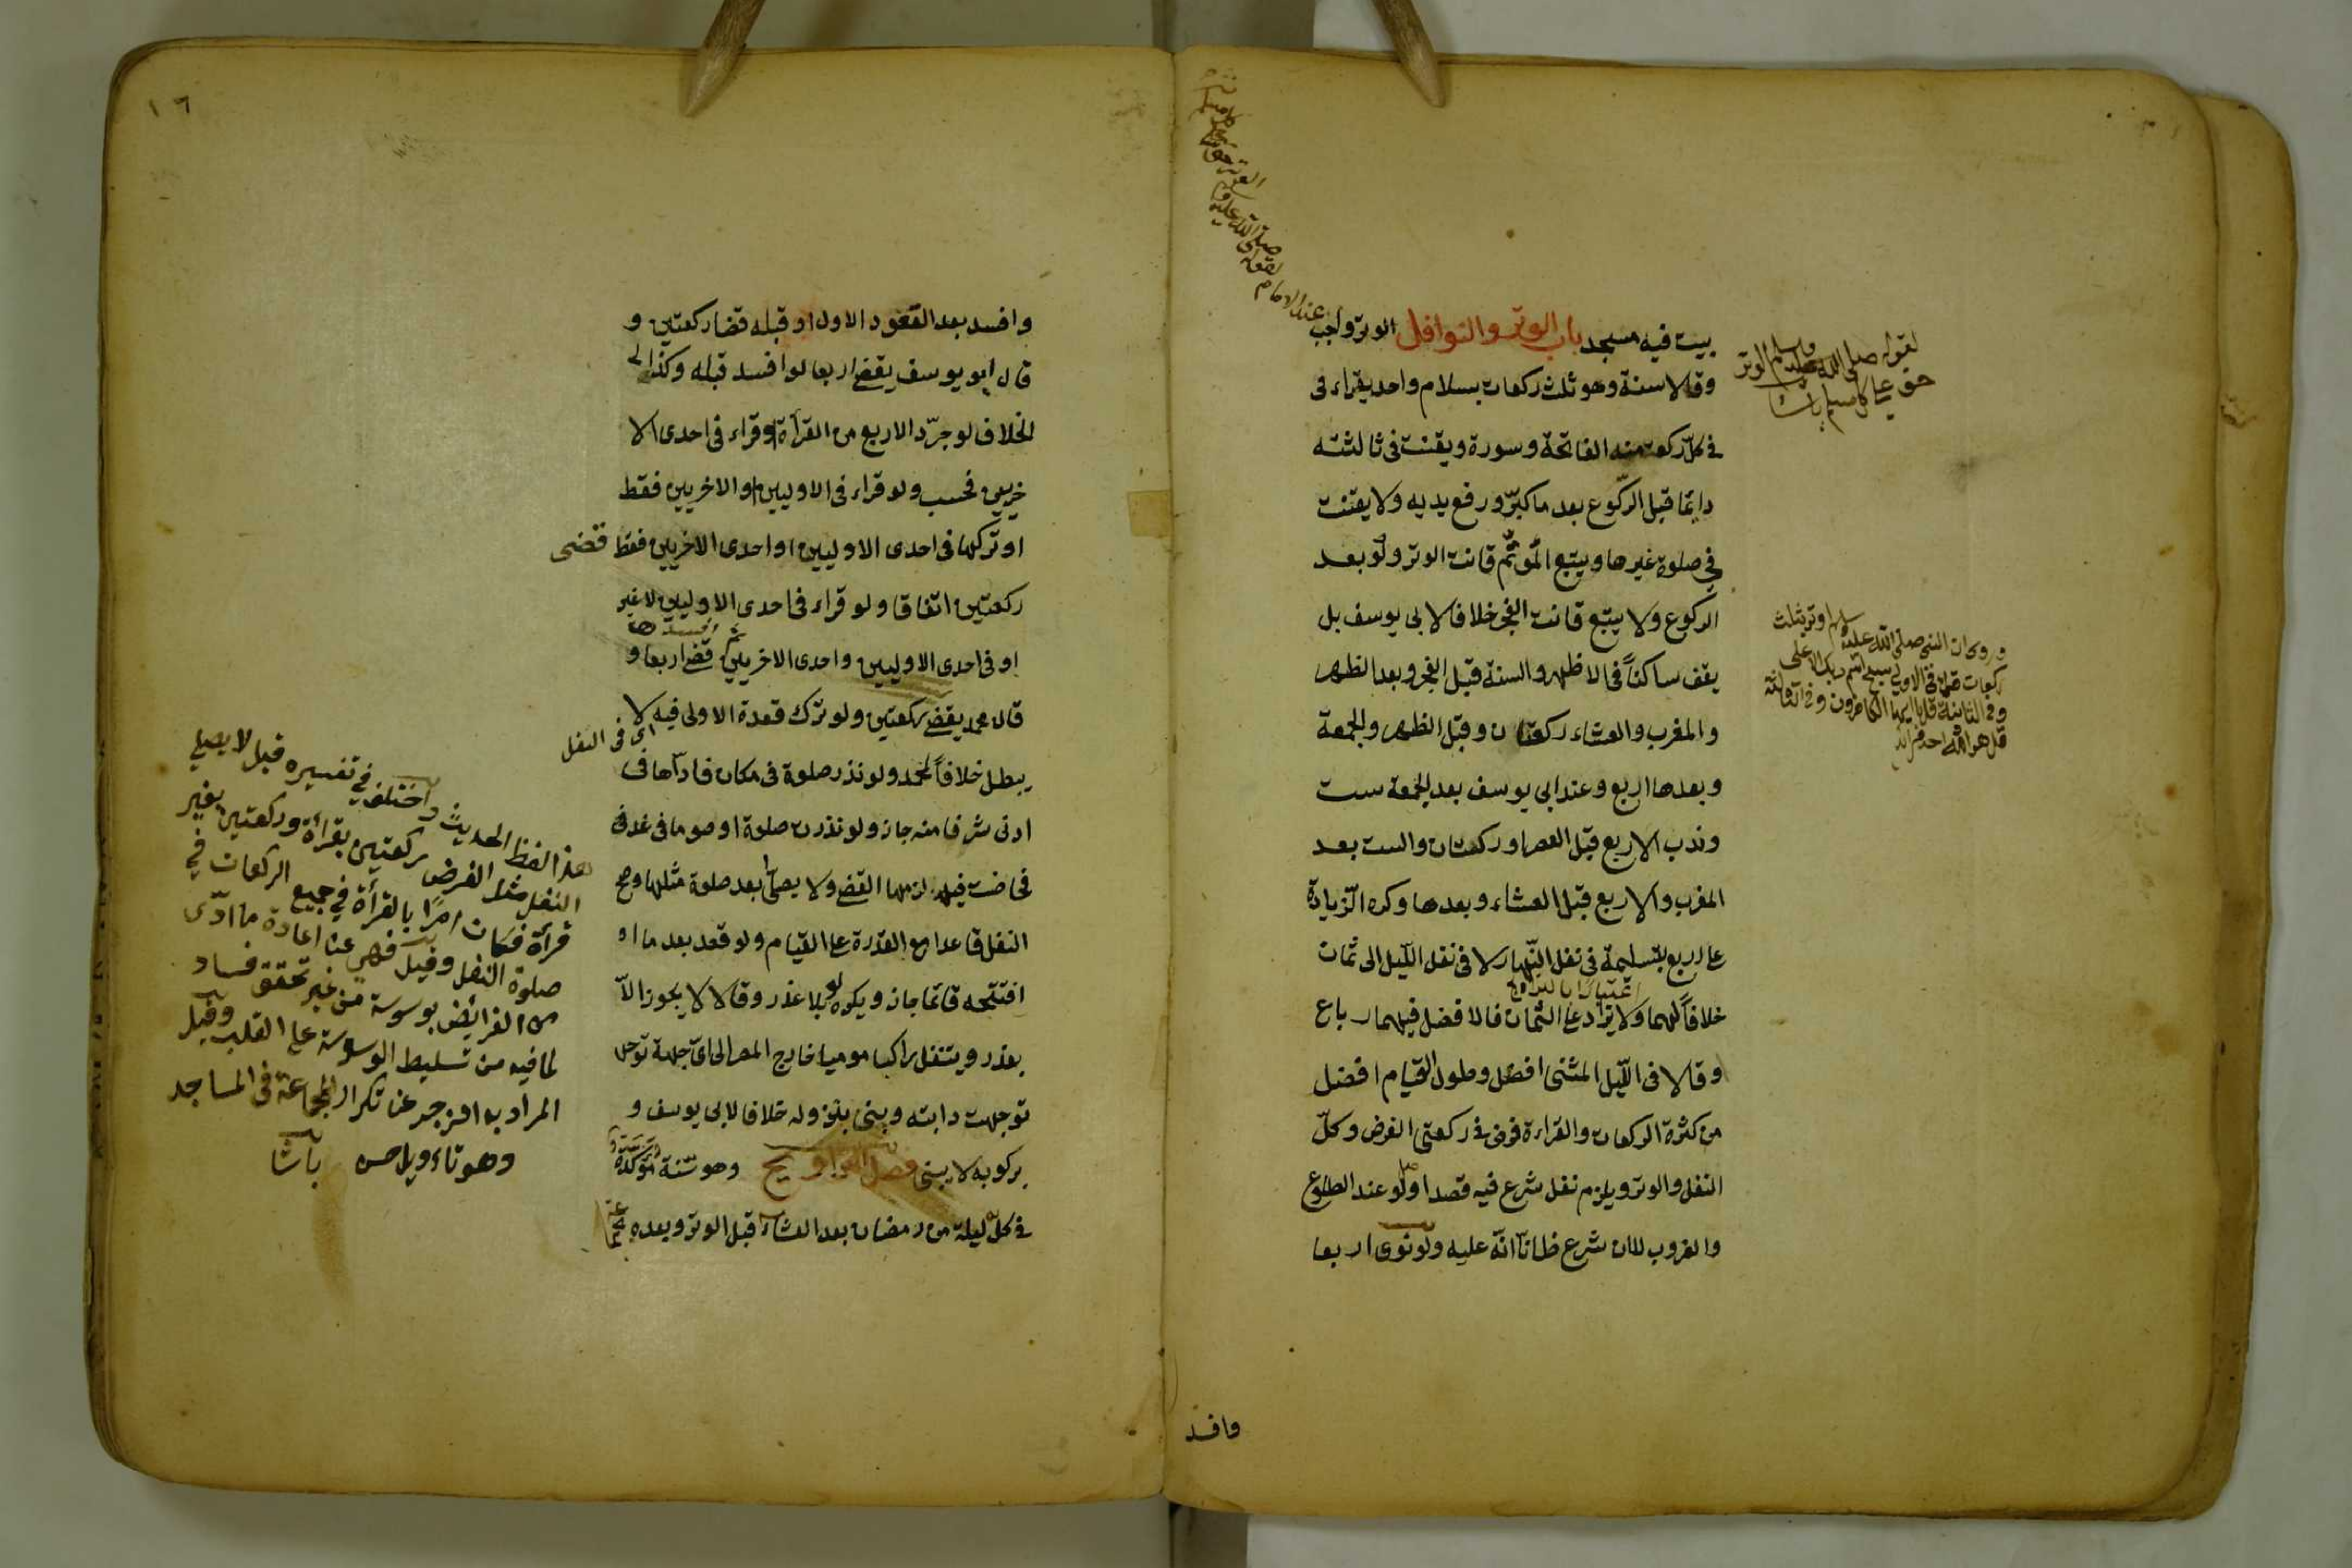 بيت فيه مسجد باب الوتر والنوافل الوتر واجب
عند الامام
وقالا سنة وهو ثلث ركعات بسلام واحد يقراء فى
فى كلّ ركعة منه الفاتحة وسورة ويقنت فى ثالثته
دايمًا قبل الرّكوع بعد ما كبّر ورفع يديه ولا يقنت
في صلوة غيرها ويتبع المؤتمّ قانت الوتر ولو بعد
الركوع ولا يتبع قانت الفجر خلافا لابى يوسف بل
يقف ساكتاً فى الاظهر والسنة قبل الفجر وبعد الظهر
والمغرب والعشاء ركعتان وقبل الظهر والجمعة
وبعدها اربع وعند ابى يوسف بعد الجمعة ست
وندب الاربع قبل العصر او ركعتان والست بعد
المغرب والاربع قبل العشاء وبعدها وكره الزّيادة
على اربع بتسليمة فى نفل النّهار لا فى نفل اللّيل الى ثمان
اعتبارًا بالتراويح
خلافاً لهما ولا يزاد على الثمان فالافضل فيهما رباع
وقالا فى اللّيل المثنى افضل وطول القيام افضل
من كثرة الركعات والقراءة فرض فى ركعتى الفرض وكلّ
النفل والوتر ويلزم نفل شرع فيه قصدا ولو عند الطلوع
والغروب لا ان شرع ظانًا انّه عليه ولو نوى اربعا
وافسد
لقوله صلى الله عليه وسلم الوتر
حق على كل مسلم باشا
وروى ان النبى صلى الله عليه وسلم اوتر بثلث
ركعات قراء فى الاولى سبح اسم ربك الاعلى
وفى الثانية قل يا ايها الكافرون وفى الثالثة
قل هو الله احد
لقوله صلى الله عليه وسلم
الوتر حق
١٦
وافسد بعد القعود الاول او قبله قضا ركعتين و
قال ابو يوسف يقضى اربعا لو افسد قبله وكذا
الخلاف لو جرّد الاربع من القرأة او قراء فى احدى الا
خريين فحسب ولو قراء فى الاوليين او الاخريين فقط
او تركها فى احدى الاوليين او احدى الاخريين فقط قضى
ركعتين اتفاقا ولو قراء فى احدى الاوليين لا غير
ثم افسدها
او فى احدى الاوليين واحدى الاخريين قضى اربعا و
قال محمد يقضى ركعتين ولو ترك قعدة الاولى فيه لا
اى فى النفل
يبطل خلافاً لمحمد ولو نذر صلوة فى مكان فادّاها فى
ادنى شرفا منه جاز ولو نذرت صلوة او صوما فى غد
فحاضت فيه لزمها القضى ولا يصلّى بعد صلوة مثلها وصح
النفل قاعدا مع القدرة على القيام ولو قعد بعد ما
افتتحه قائما جاز ويكره لو بلا عذر وقالا لا يجوز الاّ
بعذر ويتنفل راكبا موميا خارج المصر الى اىّ جهة توجه
توجهت دابته وبنى بنزوله خلافا لابى يوسف و
بركوبه لا يبنى فصل التراويح وهو سنّة مؤكدة
فى كلّ ليلة من رمضان بعد العشاء قبل الوتر وبعده
هذا لفظ الحديث واختلف في تفسيره قيل لا يصلي
النفل مثل الفرض ركعتين بقرأة وركعتين بغير
قرأة فكان امرًا بالقرأة في جميع الركعات في
صلوة النفل وقيل فهي عن اعادة ما ادّى
من الفرائض بوسوسة من غير تحقق فساد
لما فيه من تسليط الوسوسة على القلب وقيل
المراد به الزجر عن تكرار الجماعة فى المساجد
وهو تاءويل حسن باشا